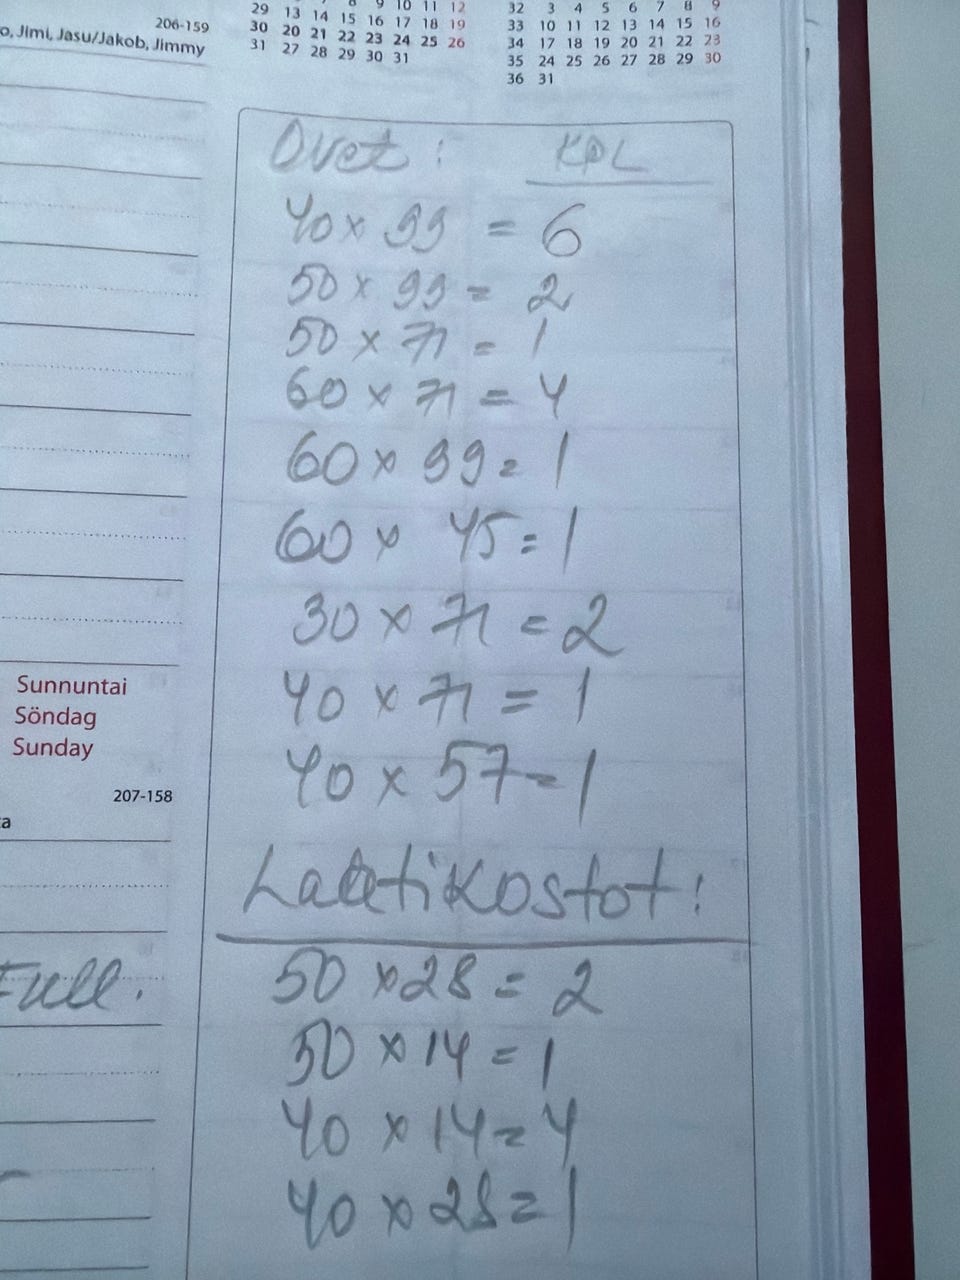 206-159
o, Jimi, Jasu/Jakob, Jimmy
29 13 14 15 16 17 18 19
30 20 21 22 23 24 25 26
31 27 28 29 30 31
32 3 4 5 6 7 8 9
33 10 11 12 13 14 15 16
34 17 18 19 20 21 22 23
35 24 25 26 27 28 29 30
36 31
Ovet: KPL
40 x 99 = 6
50 x 99 = 2
50 x 71 = 1
60 x 71 = 4
60 x 99 = 1
60 x 45 = 1
30 x 71 = 2
40 x 71 = 1
40 x 57 = 1
Sunnuntai
Söndag
Sunday
207-158
a
Laatikostot:
50 x 28 = 2
50 x 14 = 1
40 x 14 = 4
40 x 28 = 1
Full.